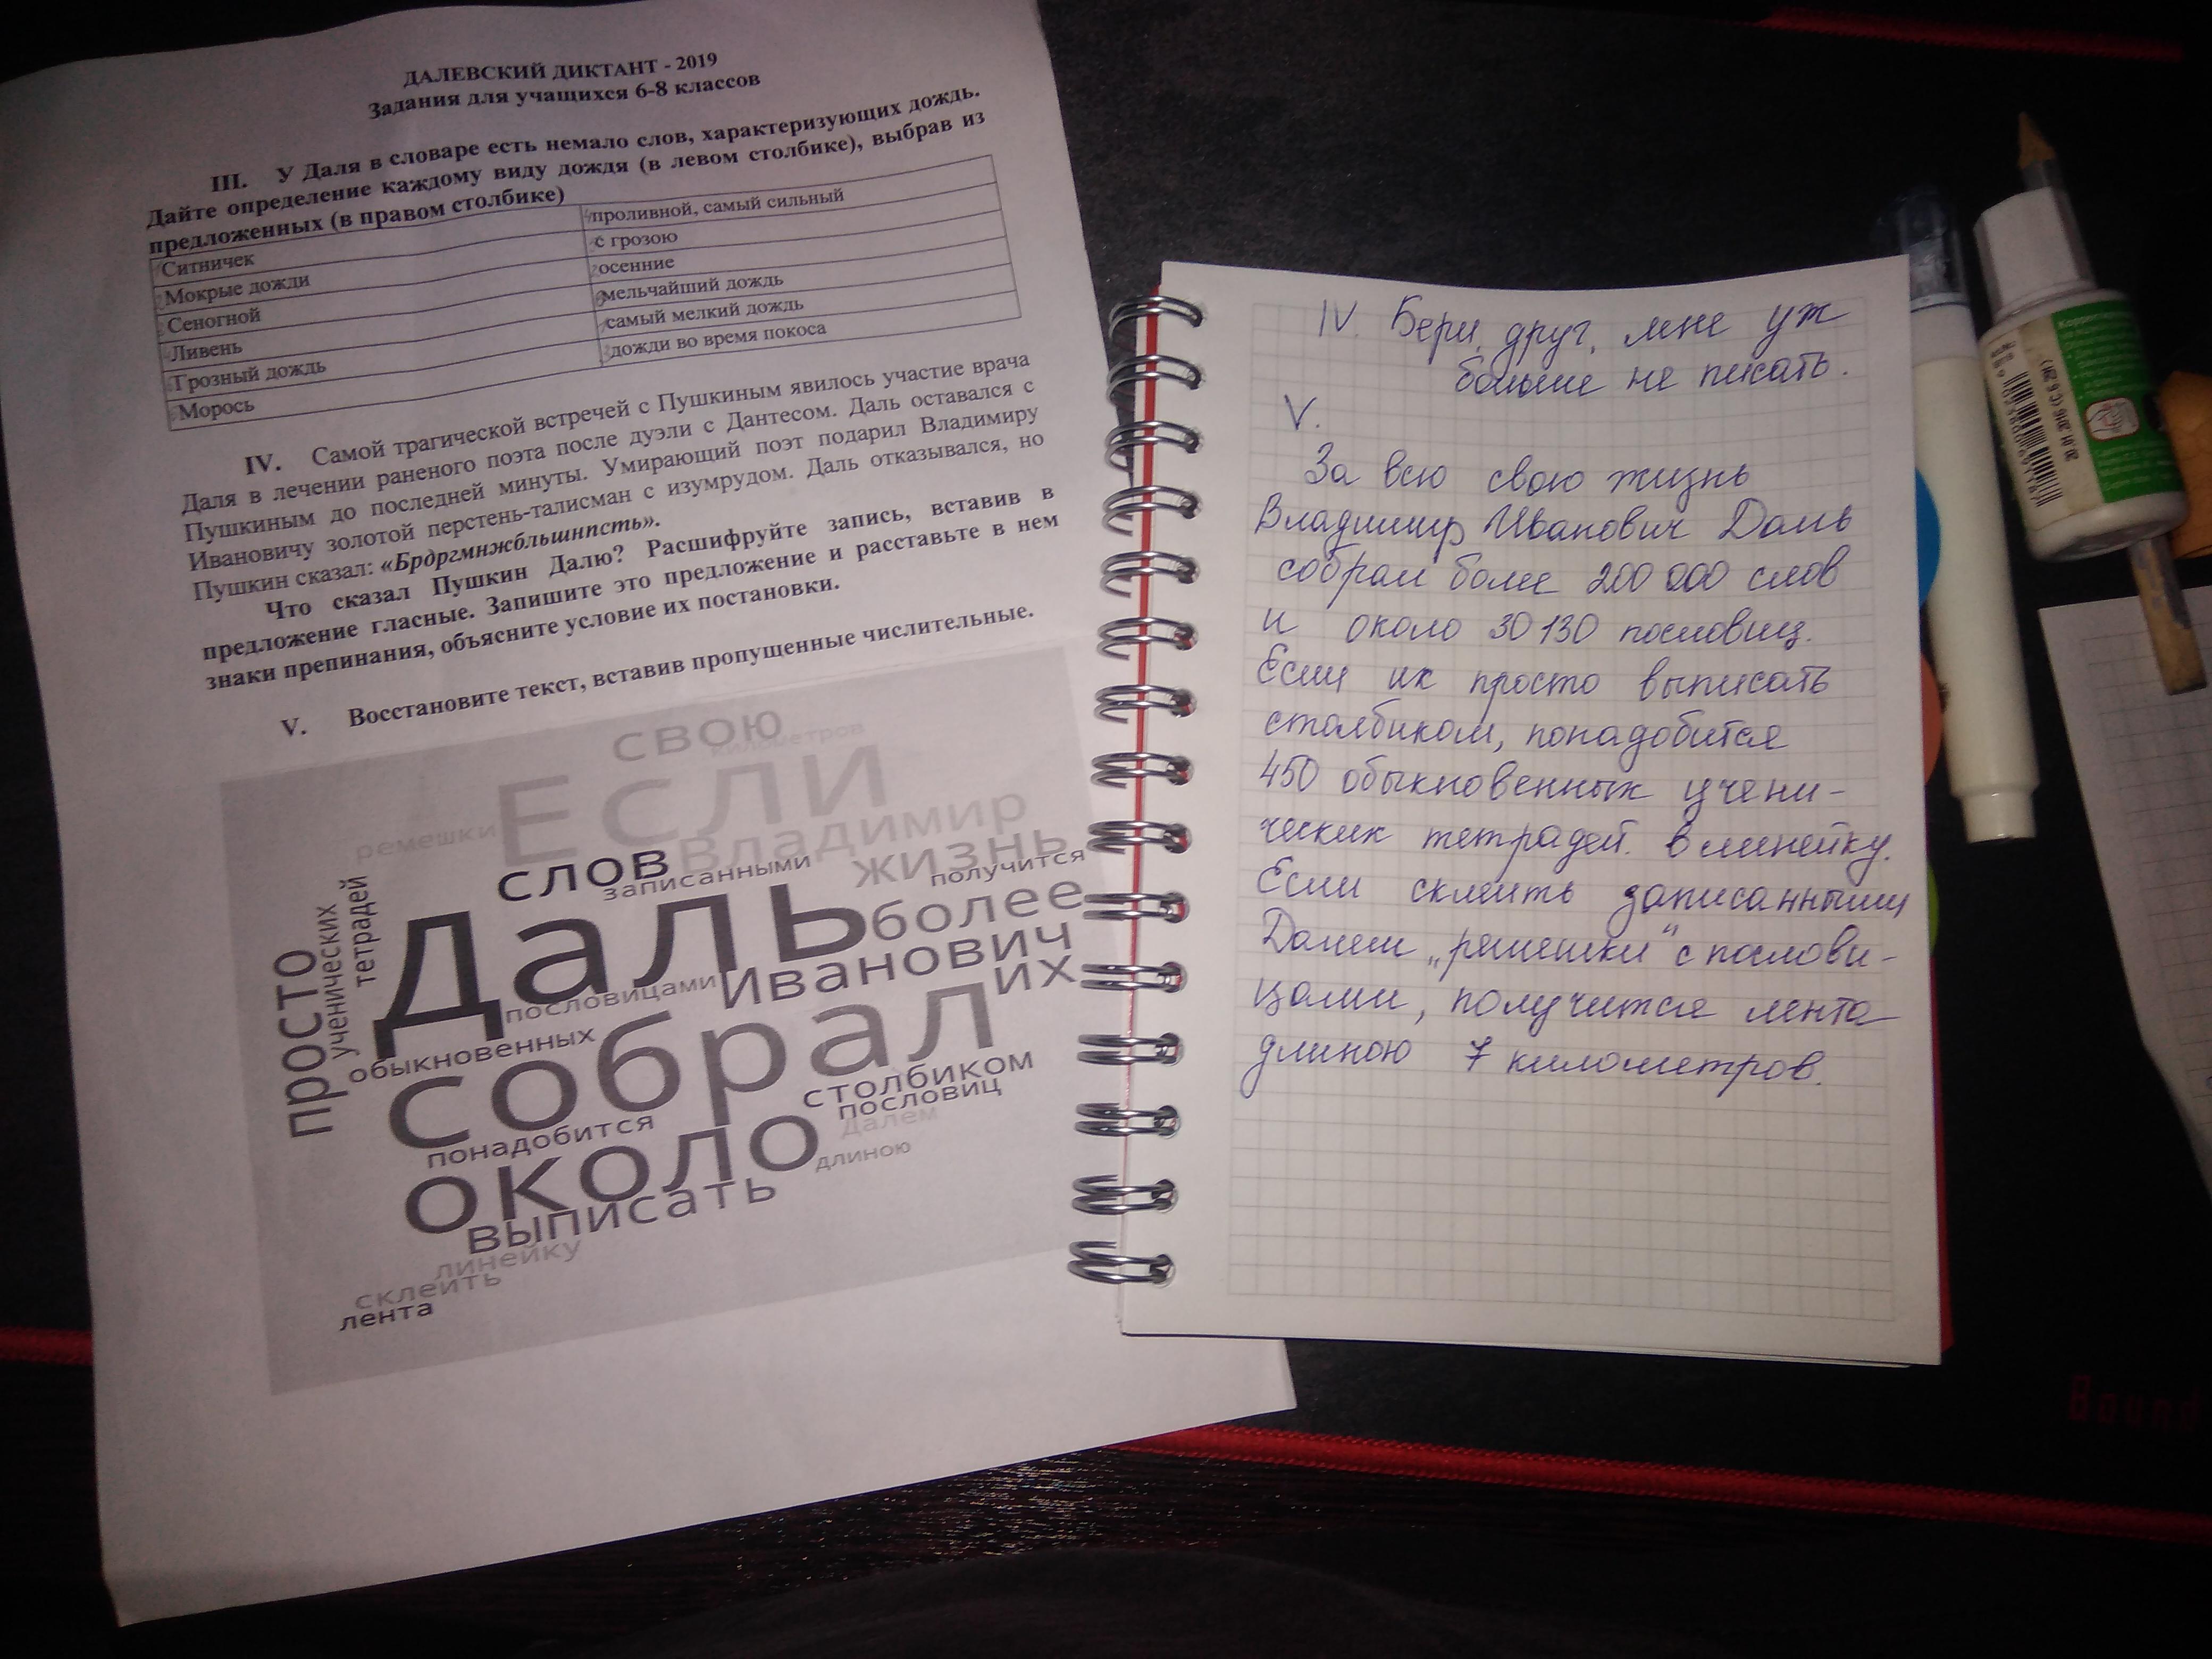 ДАЛЕВСКИЙ ДИКТАНТ - 2019
Задания для учащихся 6-8 классов
III. У Даля в словаре есть немало слов, характеризующих дождь.
Дайте определение каждому виду дождя (в левом столбике), выбрав из
предложенных (в правом столбике)
1 Ситничек
4 проливной, самый сильный
2 Мокрые дожди
5 с грозою
3 Сеногной
2 осенние
4 Ливень
6 мельчайший дождь
5 Грозный дождь
1 самый мелкий дождь
6 Морось
3 дожди во время покоса
IV. Самой трагической встречей с Пушкиным явилось участие врача
Даля в лечении раненого поэта после дуэли с Дантесом. Даль оставался с
Пушкиным до последней минуты. Умирающий поэт подарил Владимиру
Ивановичу золотой перстень-талисман с изумрудом. Даль отказывался, но
Пушкин сказал: «Брдргмнжбльшнпсть».
Что сказал Пушкин Далю? Расшифруйте запись, вставив в
предложение гласные. Запишите это предложение и расставьте в нем
знаки препинания, объясните условие их постановки.
V. Восстановите текст, вставив пропущенные числительные.
свою
километров
Если
ремешки
Владимир
слов
записанными
жизнь
получится
Даль
более
просто
ученических
тетрадей
пословицами
Иванович
их
обыкновенных
собрал
столбиком
пословиц
Далем
понадобится
около
длиною
выписать
линейку
склеить
лента
IV. Бери, друг, мне уж
больше не писать.
V.
За всю свою жизнь
Владимир Иванович Даль
собрал более 200 000 слов
и около 30 130 пословиц.
Если их просто выписать
столбиком, понадобится
450 обыкновенных учени-
ческих тетрадей в линейку.
Если склеить записанными
Далем „ремешки“ с послови-
цами, получится лента
длиною 7 километров.
Bound